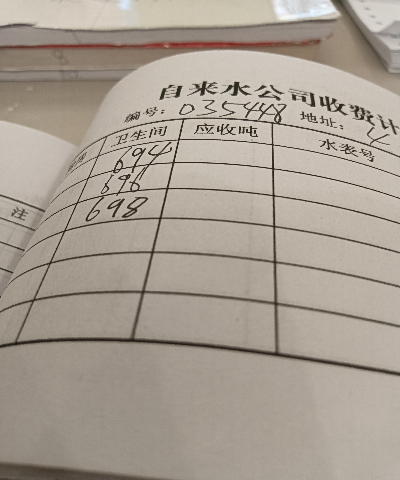 自来水公司收费计
编号: 035448 地址:
卫生间 应收吨 水表号
694
696
698
注